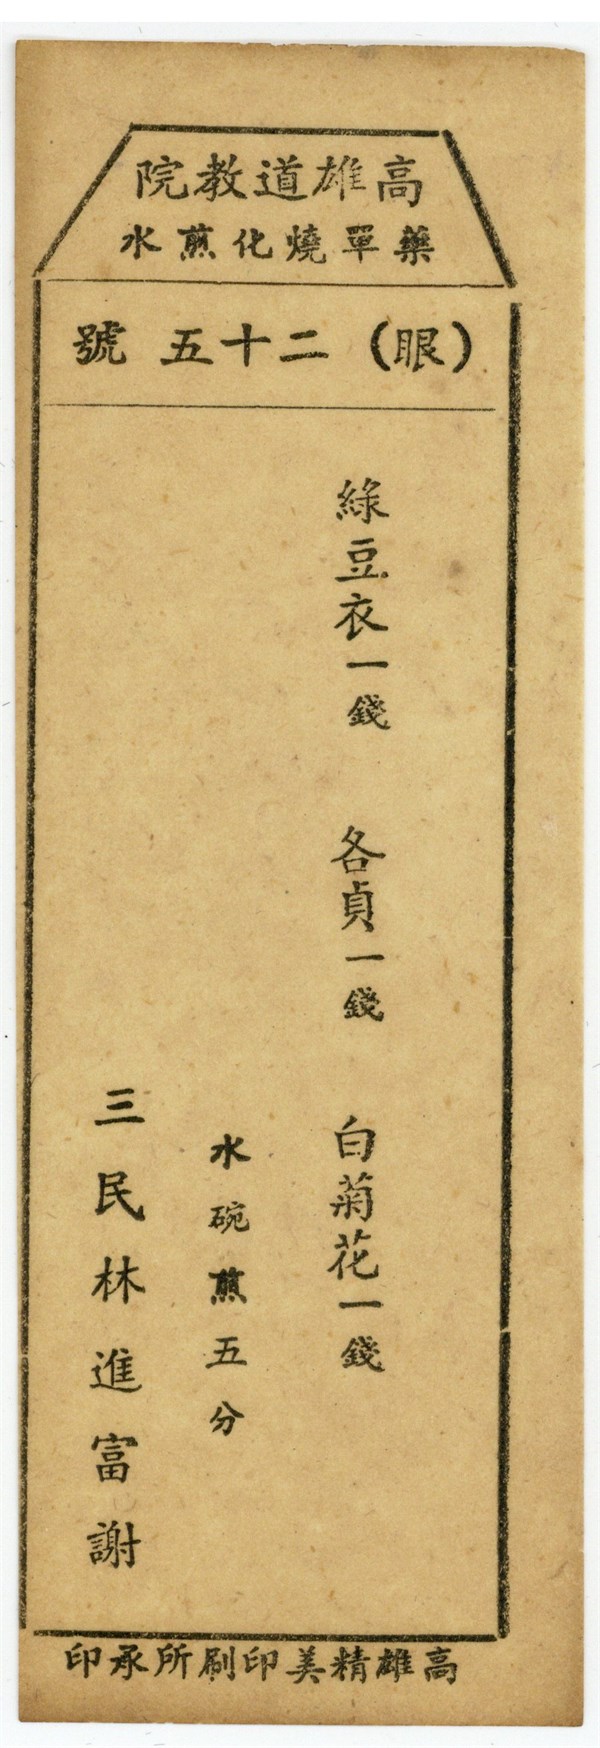 高雄道教院
藥單燒化煎水
(眼)二十五 號
綠豆衣一錢 各貞一錢 白菊花一錢
水碗煎五分
三民林進富謝
高雄精美印刷所承印